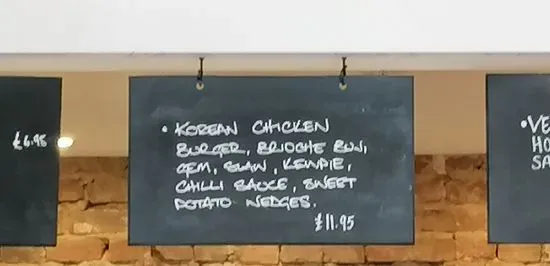 £6.95
• KOREAN CHICKEN
BURGER, BRIOCHE BUN,
GEM, SLAW, KEWPIE,
CHILLI SAUCE, SWEET
POTATO WEDGES.
£11.95
• VE
HO
SA